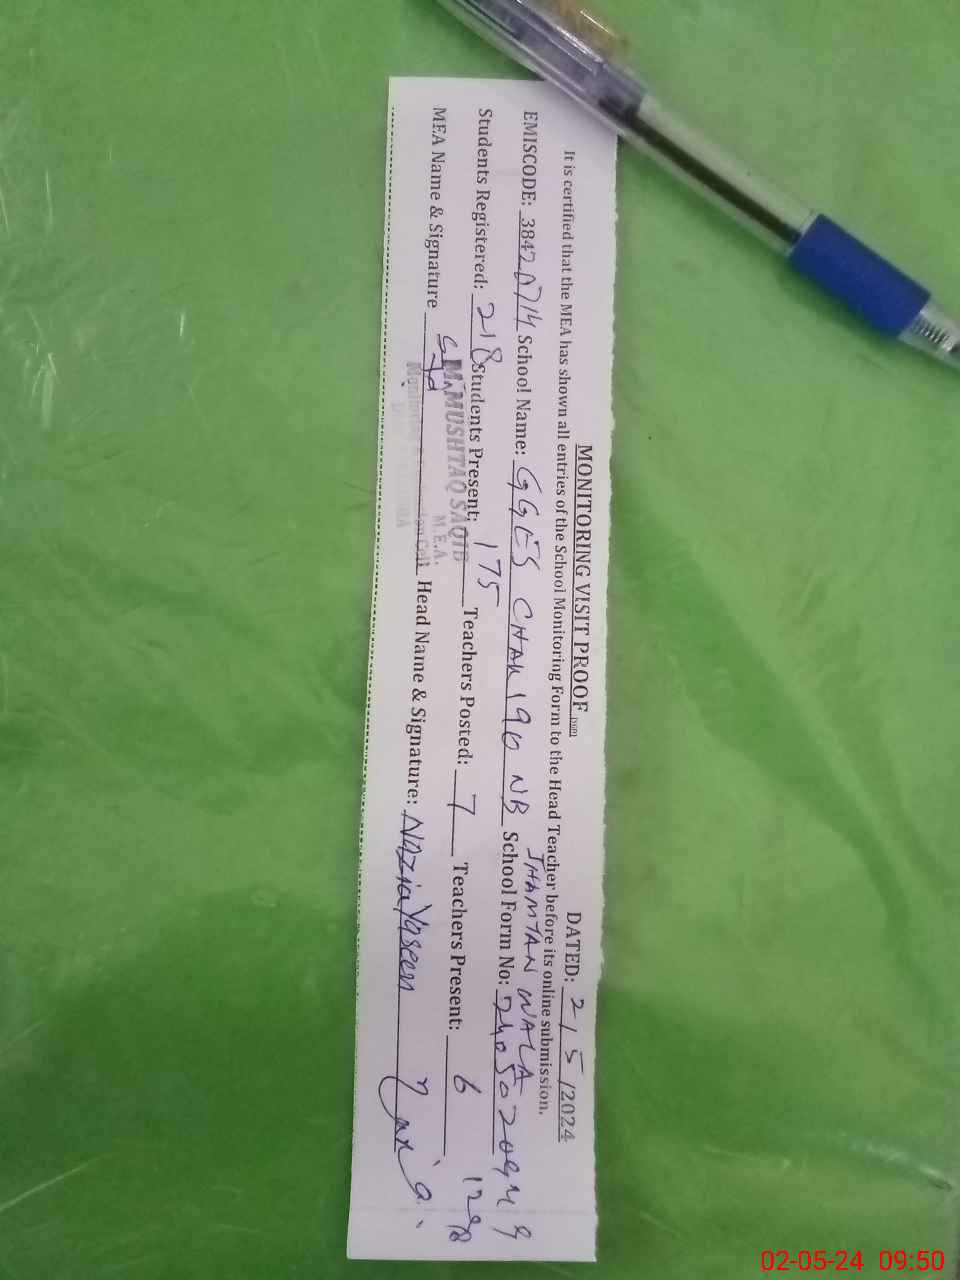 MONITORING VISIT PROOF DATED: 2/5/2024
It is certified that the MEA has shown all entries of the School Monitoring Form to the Head Teacher before its online submission.
JHAMTAN WALA
EMISCODE: 38420714 School Name: GGES CHAK 190 NB School Form No:
Students Registered: 218 Students Present: 175 Teachers Posted: 7 Teachers Present: 6
M. MUSHTAQ SAQIB
M.E.A.
MEA Name & Signature Head Name & Signature: Nazia Yaseen
02-05-24 09:50